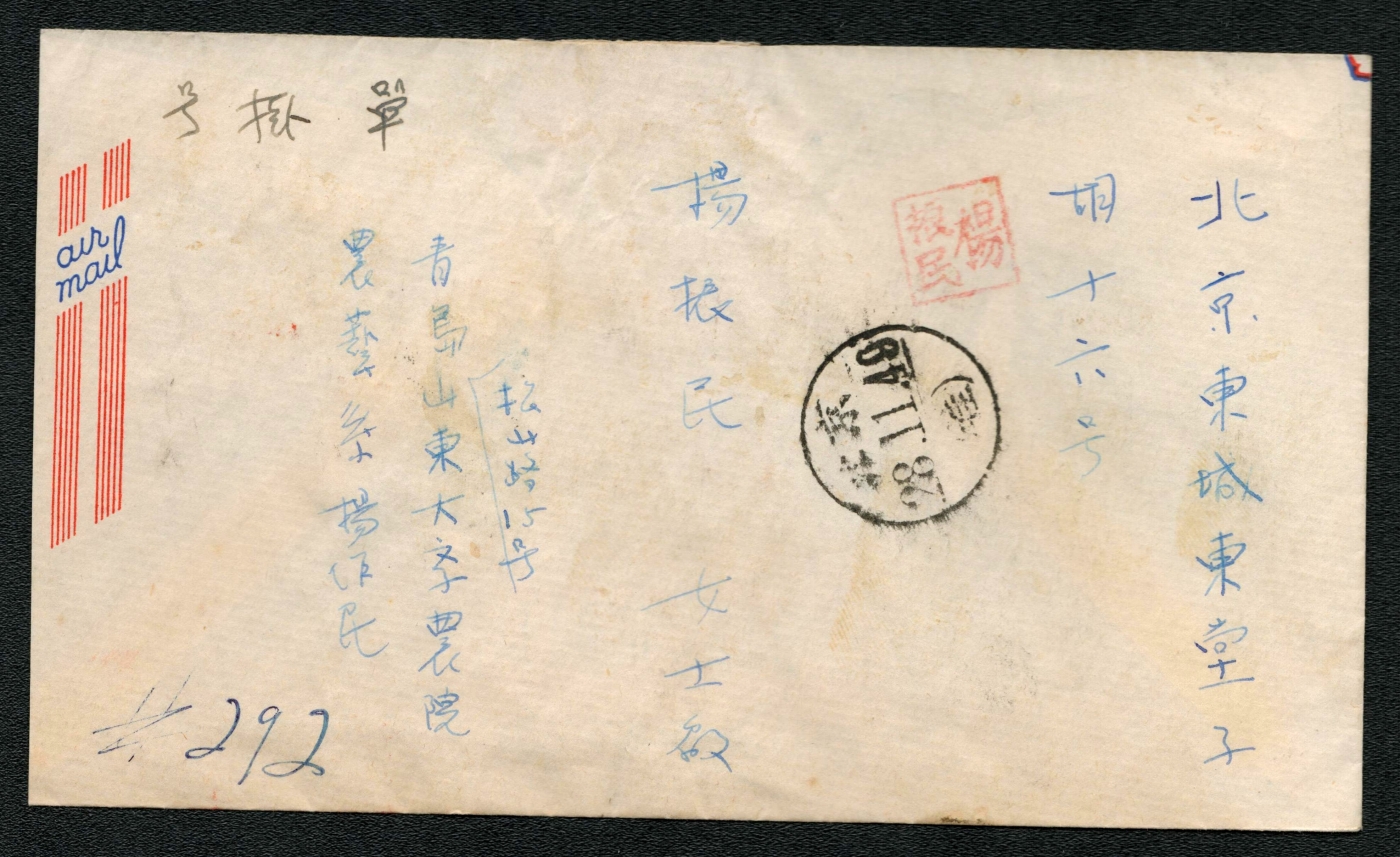 單掛号
air
mail
北京東城東堂子
胡十六号
楊振民
楊振民 女士啟
松山路15号
青島山東大学農院
農藝系 楊作民
北京
49
.11.
28
#292